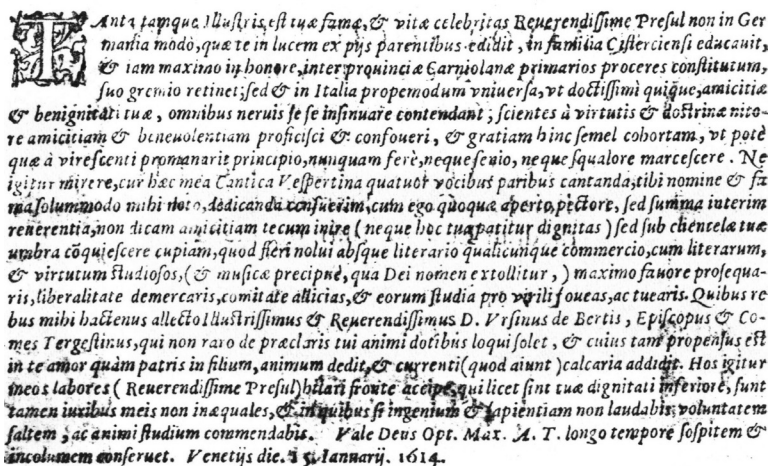 TAnta tamque Illustris est tuæ famæ, & vitæ celebritas Reuerendissime Presul non in Ger
mania modò, quæ te in lucem ex pijs parentibus edidit, in familia Cisterciensi educauit,
& iam maximo in honore, inter prouinciæ Carniolanæ primarios proceres constitutum,
suo gremio retinet; sed & in Italia propemodum vniuersa, vt doctissimi quique, amicitiæ
& benignitati tuæ, omnibus neruis se se insinuare contendant; scientes à virtutis & doctrinæ nito-
re amicitiam & beneuolentiam proficisci & confoueri, & gratiam hinc semel cohortam, vt potè
quæ à virescenti promanarit principio, nunquam ferè, neque senio, neque squalore marcescere. Ne
igitur mirere, cur hæc mea Cantica Vespertina quatuor vocibus paribus cantanda, tibi nomine & fa
ma solummodo mihi noto, dedicanda censuerim, cum ego quoque aperto pectore, sed summa interim
reuerentia, non dicam amicitiam tecum inire (neque hoc tua patitur dignitas) sed sub clientelæ tuæ
umbra cõquiescere cupiam, quod fieri nolui absque literario qualicunque commercio, cum literarum,
& virtutum studiosos, (& musicæ precipuè, qua Dei nomen extollitur,) maximo fauore prosequa-
ris, liberalitate demercaris, comitate allicias, & eorum studia pro virili foueas, ac tuearis. Quibus re
bus mihi hactenus allecto Illustrissimus & Reuerendissimus D. Vrsinus de Bertis, Episcopus & Co-
mes Tergestinus, qui non raro de præclaris tui animi dotibus loqui solet, & cuius tam propensus est
in te amor quàm patris in filium, animum dedit, & currenti (quod aiunt) calcaria addidit. Hos igitur
meos labores (Reuerendissime Presul) hilari fronte accipe, qui licet sint tuæ dignitati inferiore, sunt
tamen iuribus meis non inæquales, & in quibus si ingenium & sapientiam non laudabis, voluntatem
saltem, ac animi studium commendabis. Vale Deus Opt. Max. A. T. longo tempore sospitem &
incolumem conseruet. Venetijs die. 15. Ianuarij, 1614.